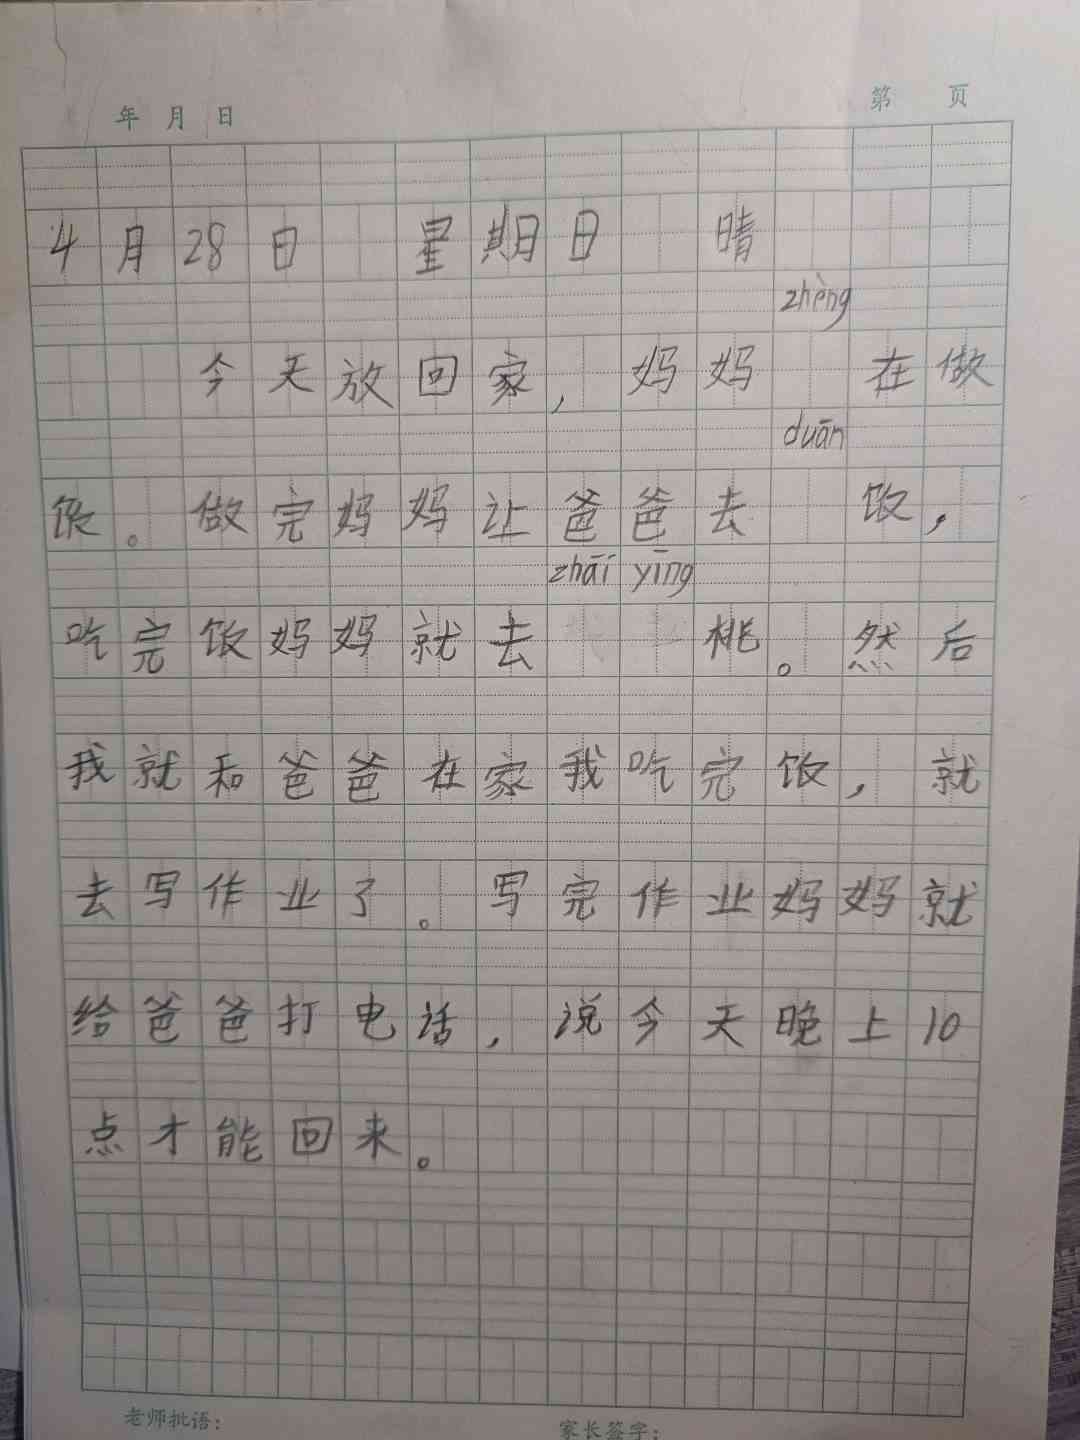 年 月 日 第 页
4月28日 星期日 晴
zhèng
今天放回家，妈妈 在做
duān
饭。做完妈妈让爸爸去 饭，
zhāi yīng
吃完饭妈妈就去 桃。然后
我就和爸爸在家我吃完饭，就
去写作业了。写完作业妈妈就
给爸爸打电话，说今天晚上10
点才能回来。
老师批语： 家长签字：